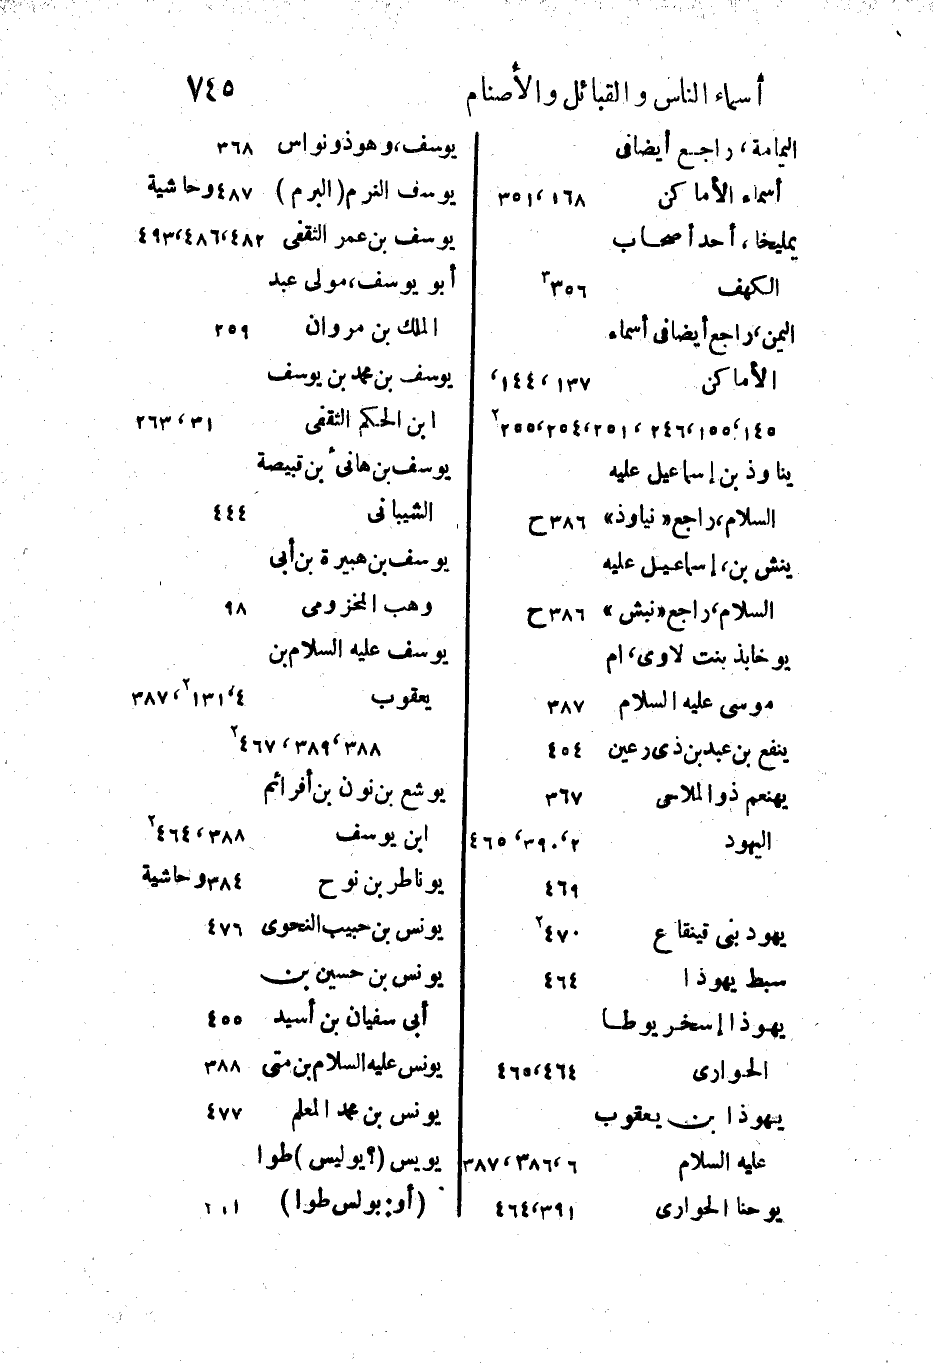 أسماء الناس والقبائل والأصنام ٧٤٥
اليمامة، راجع أيضا فى
أسماء الأماكن ١٦٨، ٣٥١
يمليخا، أحد أصحاب
الكهف ٣٥٦٢
اليمن، راجع أيضا فى أسماء
الأماكن ١٣٧، ١٤٤،
١٤٥، ١٥٥، ٢٤٦، ٢٥١، ٢٥٤، ٢٥٥٢
يناوذ بن إسماعيل عليه
السلام، راجع «نياوذ» ٣٨٦ح
ينش بن، إسماعيل عليه
السلام، راجع «نبش» ٣٨٦ح
يوخابذ بنت لاوى، ام
موسى عليه السلام ٣٨٧
ينفع بن عبد بن ذى رعين ٤٥٤
يهنعم ذو الملاحى ٣٦٧
اليهود ٢، ٣٩٠، ٤٦٥
٤٦٩
يهود بنى قينقاع ٤٧٠٢
سبط يهوذا ٤٦٤
يهوذا إسخريوطا
الحوارى ٤٦٤، ٤٦٥
يهوذا بن يعقوب
عليه السلام ٦، ٣٨٦، ٣٨٧
يوحنا الحوارى ٣٩١، ٤٦٤
يوسف، وهو ذو نواس ٣٦٨
يوسف النرم (البرم) ٤٨٧ وحاشية
يوسف بن عمر الثقفى ٤٨٢، ٤٨٦، ٤٩٣
أبو يوسف، مولى عبد
الملك بن مروان ٢٥٩
يوسف بن محمد بن يوسف
ابن الحكم الثقفى ٣١، ٢٦٣
يوسف بن هانىء بن قبيصة
الشيبانى ٤٤٤
يوسف بن هبيرة بن أبى
وهب المخزومى ٩٨
يوسف عليه السلام بن
يعقوب ٤، ١٣١٢، ٣٨٧،
٣٨٨، ٣٨٩، ٤٦٧٢
يوشع بن نون بن أفرائم
ابن يوسف ٣٨٨، ٤٦٤٢
يوناطر بن نوح ٣٨٤ وحاشية
يونس بن حبيب النحوى ٤٧٦
يونس بن حسين بن
أبى سفيان بن أسيد ٤٥٥
يونس عليه السلام بن متى ٣٨٨
يونس بن محمد المعلم ٤٧٧
يويس (؟ يوليس) طوا
(أو: بولس طوا)